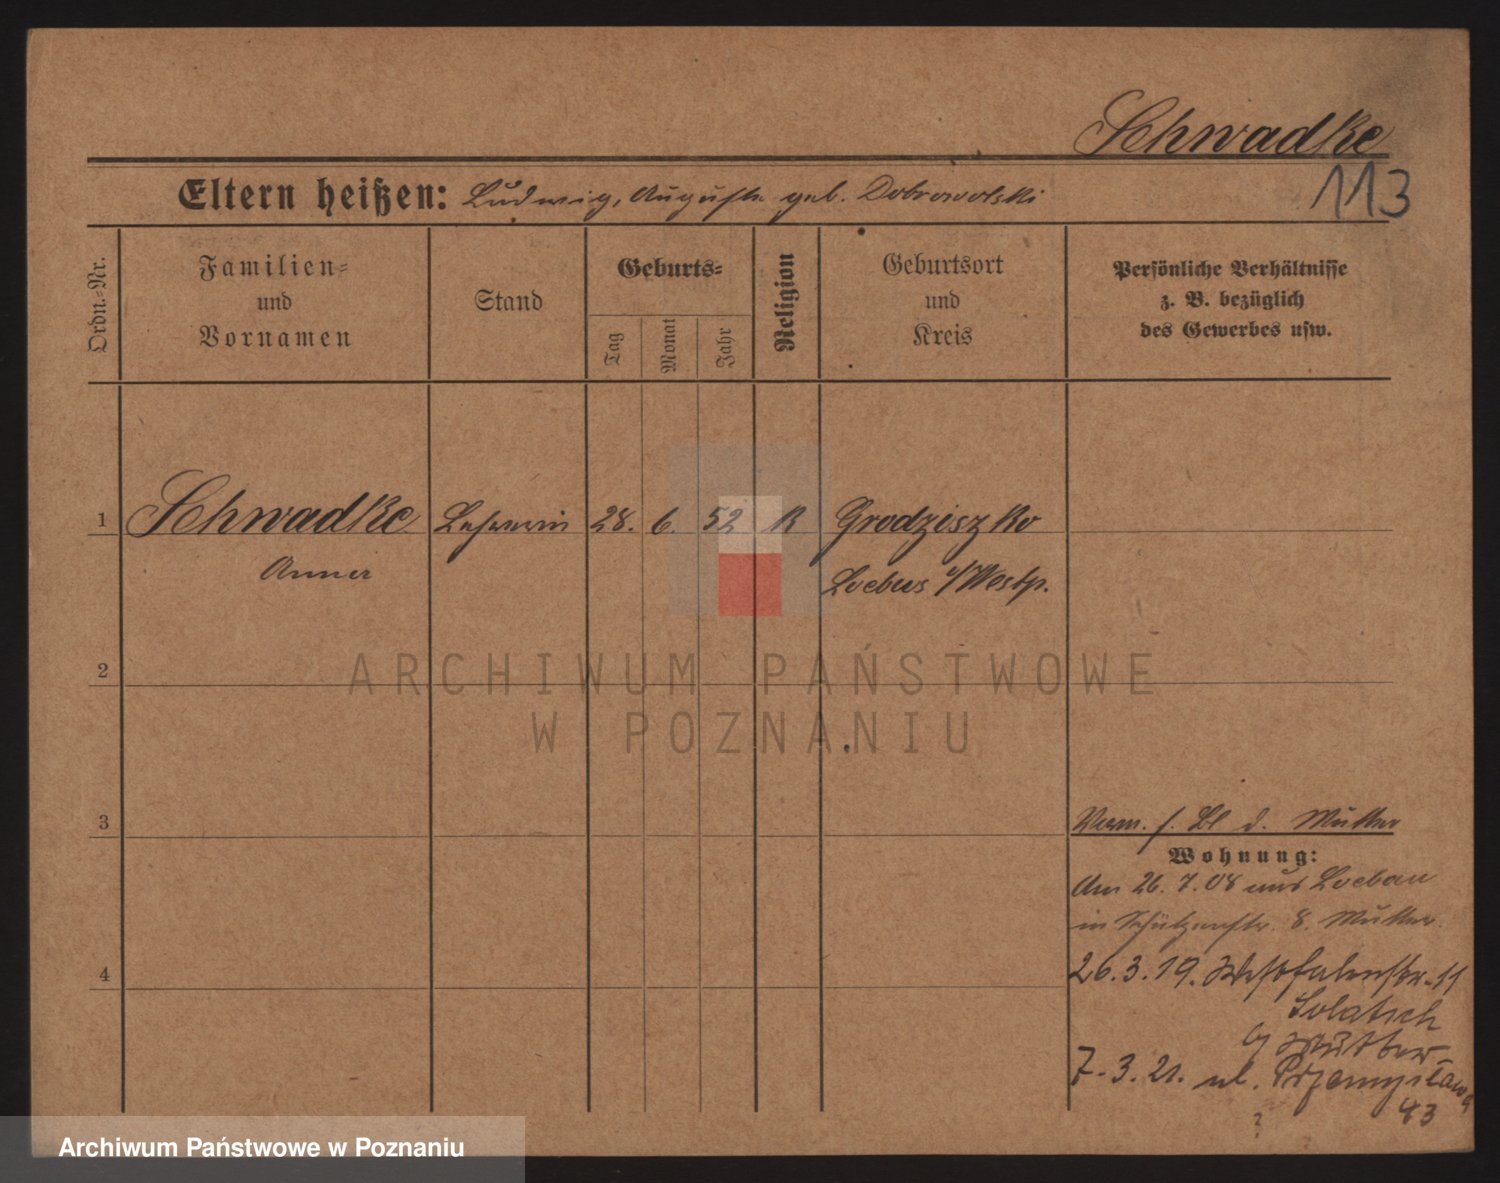 Schwadke
Eltern heißen: Ludwig, Auguste geb. Dobrowolski
113
Ordn.-Nr.
Familien-
und
Vornamen
Stand
Geburts-
Tag
Monat
Jahr
Religion
Geburtsort
und
Kreis
Persönliche Verhältnisse
z. B. bezüglich
des Gewerbes usw.
1 Schwadke Lehrerin 28. 6. 52 K Grodziszko
Anna
Loebau /Westp.
2
ARCHIWUM PAŃSTWOWE
W POZNANIU
3
Verm. s. Bl d. Mutter
Wohnung:
Am 26. 7. 08 aus Loebau
in Schützenstr. 8. Mutter.
4
26.3.19. Westfalenstr. 11
Solatsch
Mutter
7.3.21. ul. Przemysława
43
?
Archiwum Państwowe w Poznaniu